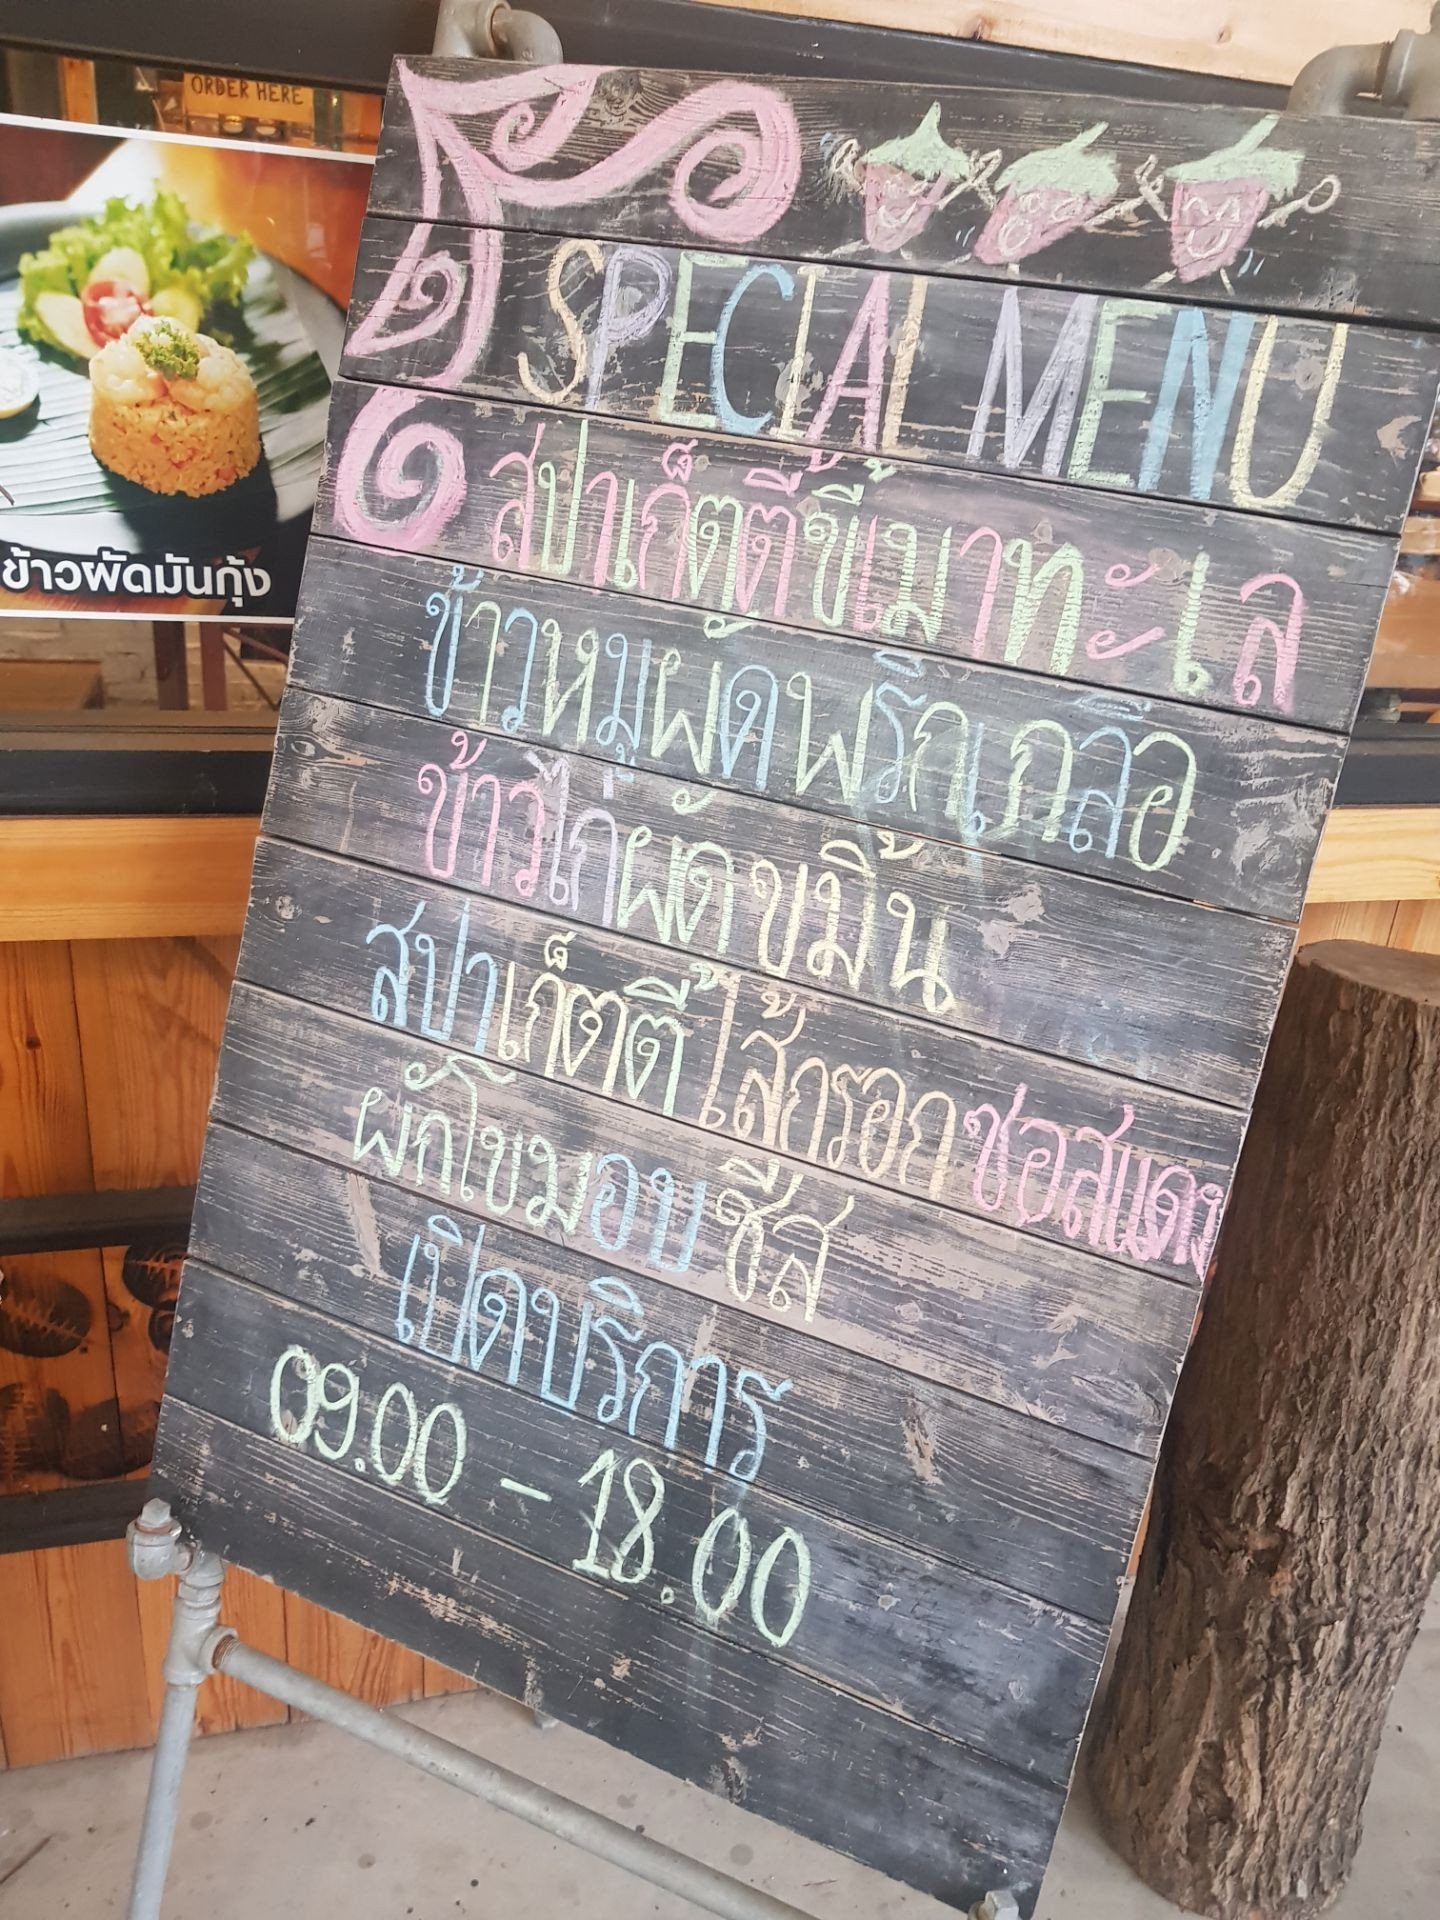 ORDER HERE
SPECIAL MENU
สปาเก็ตตี้ขี้เมาทะเล
ข้าวหมูผัดพริกเกลือ
ข้าวไก่ผัดขมิ้น
สปาเก็ตตี้ไส้กรอกซอสแดง
ผักโขมอบชีส
เปิดบริการ
09.00 - 18.00
ข้าวผัดมันกุ้ง